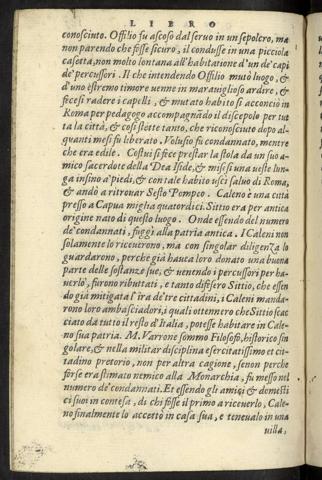 LIBRO
conosciuto. Offilio fu ascoso dal seruo in un sepolcro, ma
non parendo che fosse sicuro, il condusse in una picciola
casotta, non molto lontana all'habitatione d'un de' capi
de' percussori. Il che intendendo Offilio mutò luogo, &
d'uno estremo timore uenne in marauiglioso ardire, &
fecesi radere i capelli, & mutato habito si acconciò in
Roma per pedagogo accompagnādo il discepolo per tut
ta la città, & così stette tanto, che riconosciuto dopo al-
quanti mesi fu liberato. Volusio fu condannato, mentre
che era edile. Costui si fece prestar la stola da un suo a-
mico sacerdote della Dea Iside, & misesi una ueste lun-
ga insino a' piedi, & con tale habito uscì saluo di Roma,
& andò a ritrouar Sesto Pompeo. Caleno è una città
presso a Capua miglia quatordici. Sittio era per antica
origine nato di questo luogo. Onde essendo del numero
de' condannati, fuggì alla patria antica. I Caleni non
solamente lo riceuerono, ma con singolar diligenza lo
guardarono, perche già hauea loro donato una buona
parte delle sostanze sue, & uenendo i percussori per ha-
uerlo, furono ributtati, e tanto difesero Sittio, che essen
do già mitigata l'ira de' tre cittadini, i Caleni manda-
rono loro ambasciadori, i quali ottennero che Sittio scac
ciato da tutto il resto d'Italia, potesse habitare in Cale-
no sua patria. M. Varrone sommo Filosofo, historico sin
golare, & nella militar disciplina esercitatissimo et cit-
tadino pretorio, non per altra cagione, se non perche
forse era stimato nemico alla Monarchia, fu messo nel
numero de' condennati. Et essendo gli amici & domesti
ci suoi in contesa, di chi fosse il primo a riceuerlo, Cale-
no finalmente lo accettò in casa sua, e teneualo in una
uilla,